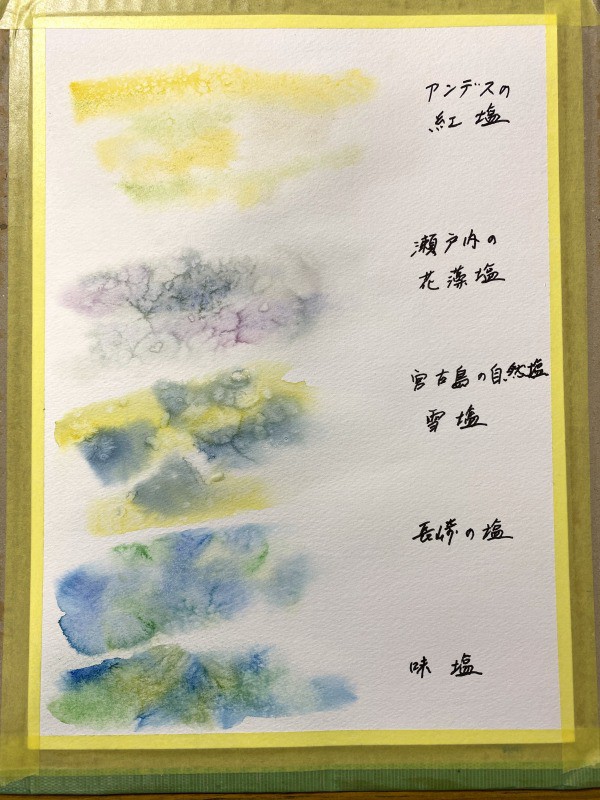 アンデスの
紅塩
瀬戸内の
花藻塩
宮古島の自然塩
雪塩
長崎の塩
味塩